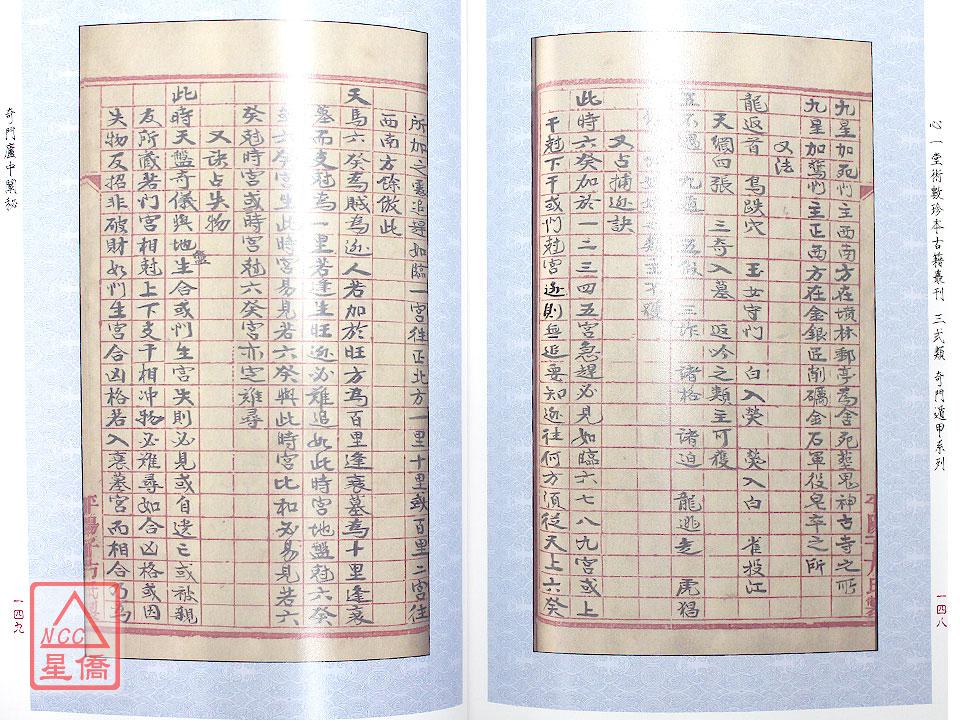 心一堂術數珍本古籍叢刊 三式類 奇門遁甲系列
一四八
九星加死門主西南方在墳林郵亭寫舍死葬鬼神古寺之所
九星加驚門主正西方在金銀匠削礪金石軍役皂卒之所
又法
龍返首 鳥跌穴 玉女守門 白入熒 熒入白 雀投江
天網四張 三奇入墓 返吟之類主可獲
不遇 九遁 五假 三詐 諸格 諸迫 龍逃走 虎猖
又占捕逃訣
此時六癸加於一二三四五宮急趕必見如臨六七八九宮或上
干尅下干或門尅宮逃則無追要知逃往何方須從天上六癸
所加之處追尋如臨一宮往正北方一里十里或百里二宮往
西南方餘倣此
天馬六癸為賊為逃人若加於旺方為百里逢衰墓為十里逢衰
墓而支尅為一里若逢生旺逃必難追如此時宮地盤尅六癸
或六癸宮生此時宮易見若六癸與此時宮比和必易見若六
癸尅時宮或時宮尅六癸宮亦定難尋
又訣占失物
此時天盤奇儀與地盤生合或門生宮失則必見或自遺亡或被親
友所藏若門宮相尅上下支干相沖物必難尋如合凶格或因
失物反招非破財如門生宮合凶格若入衰墓宮而相合乃為
奇門廬中闡秘
一四九
NCC
星僑